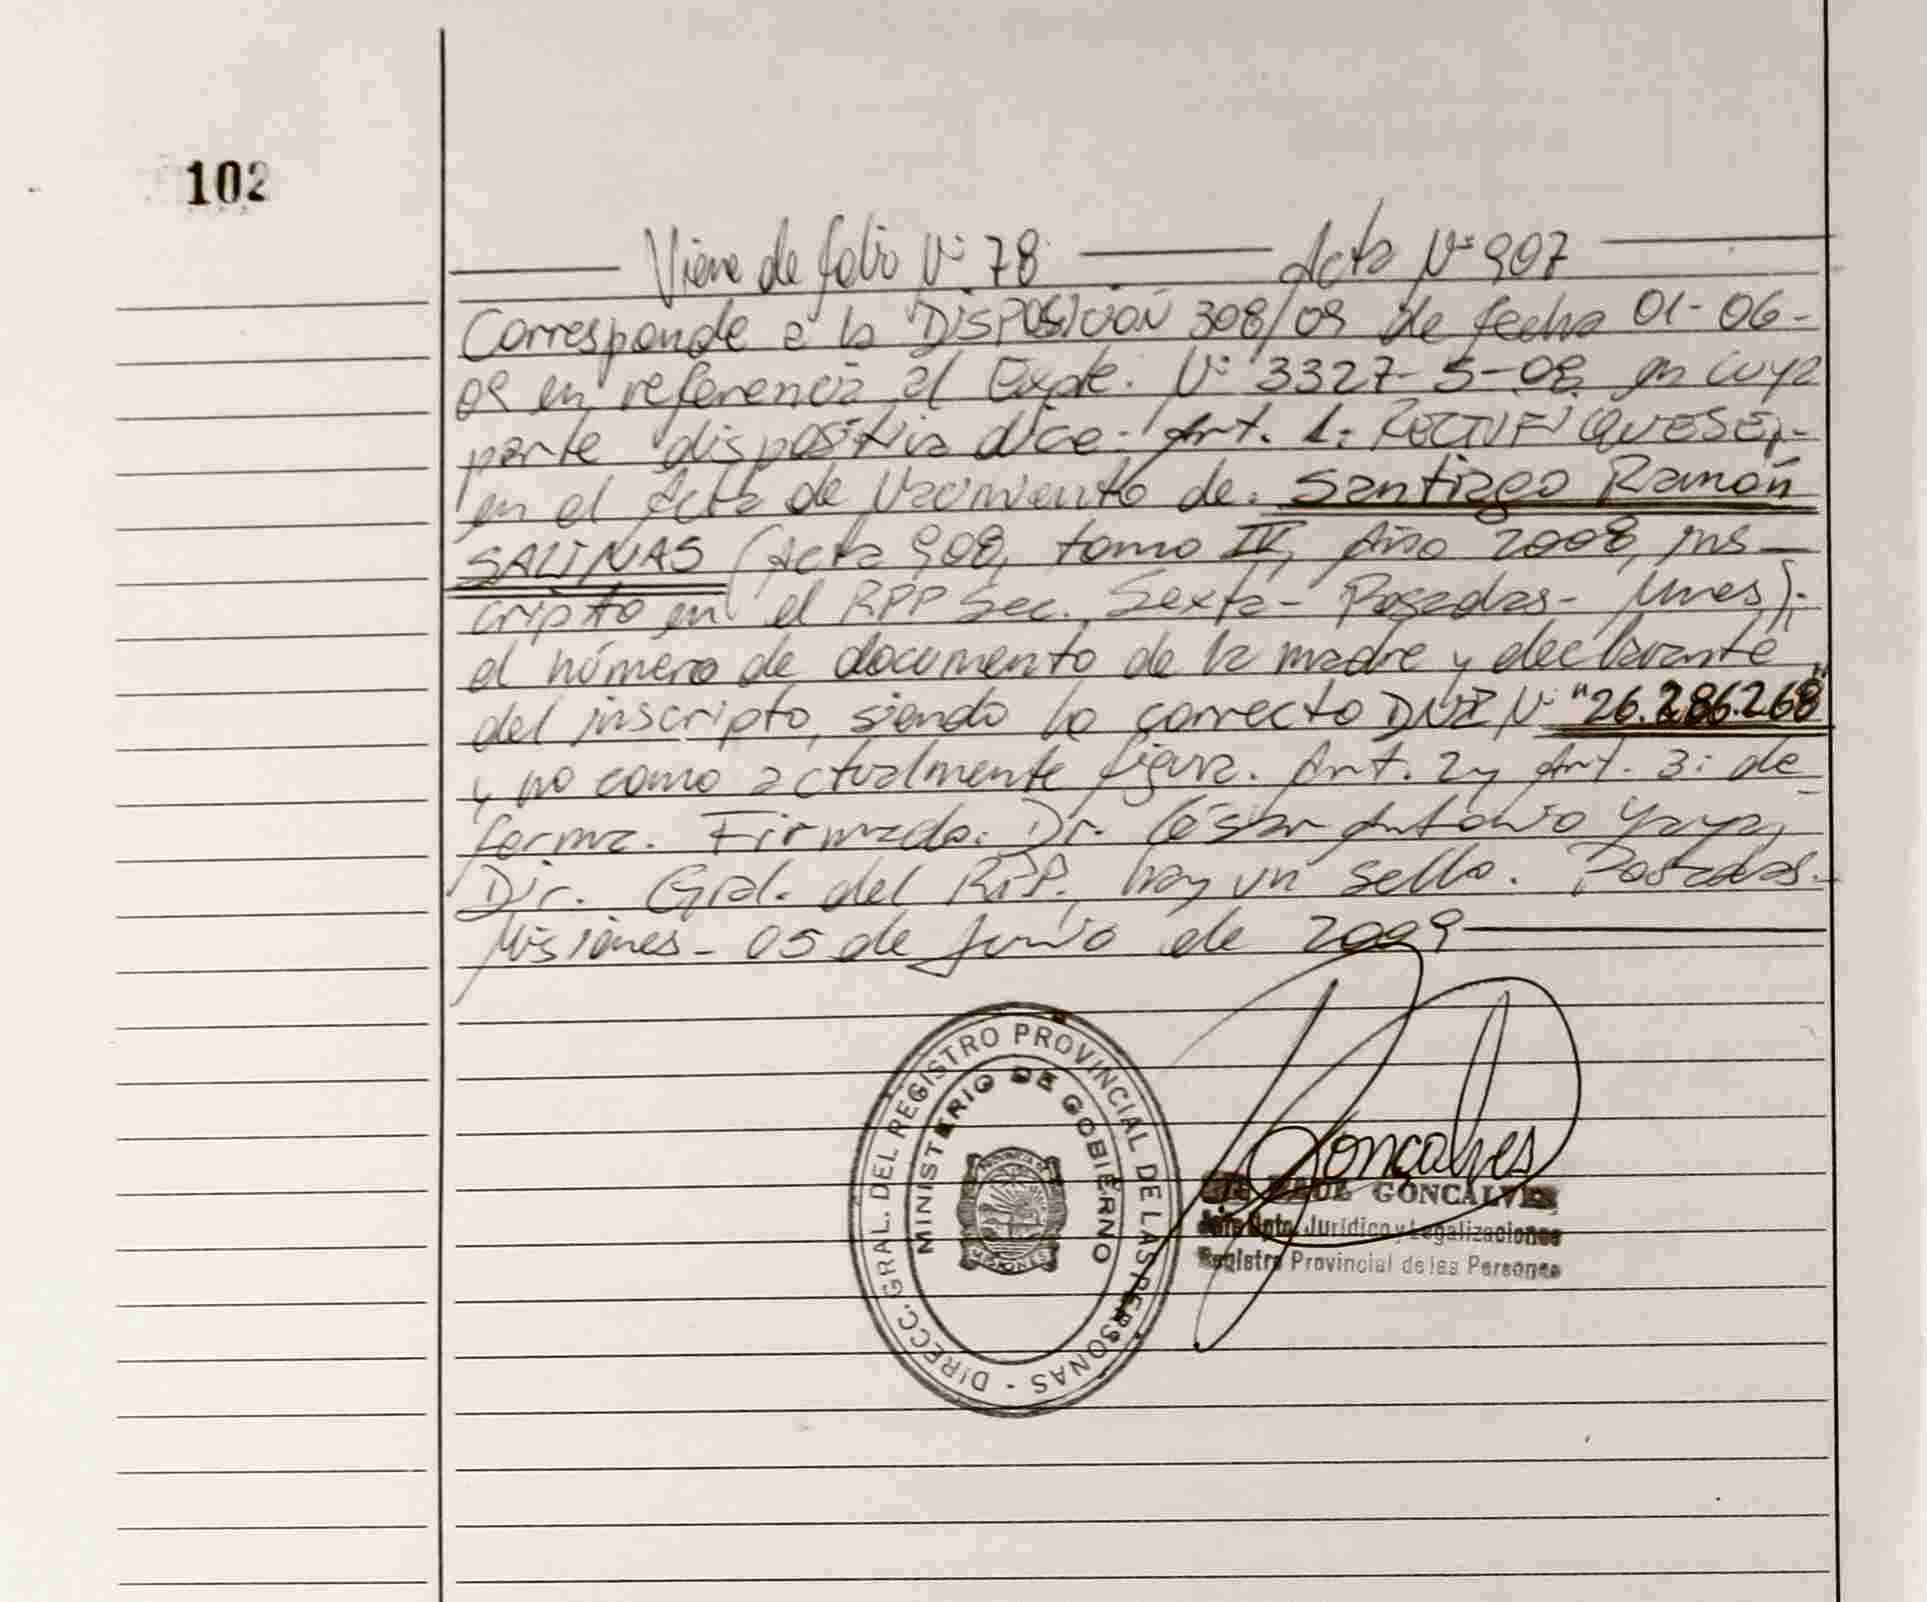 102
Viene de folio Nº 78 Acta Nº 907
Corresponde a la DISPOSICIÓN 308/09 de fecha 01-06-
09 en referencia al Expte. Nº 3327-S-08 en cuya
parte dispositiva dice: Art. 1: RECTIFIQUESE,-
en el Acta de Nacimiento de: Santiago Ramón
SALINAS (Acta 908, tomo IV, Año 2008, ins-
cripto en el RPP Sec. Sexta- Posadas- Mnes),
el número de documento de la madre y declarante
del inscripto, siendo lo correcto DNI Nº "26.286.268"
y no como actualmente figura. Art. 2 y Art. 3: de
forma. Firmado: Dr. César Antonio Yaya,
Dir. Gral. del RPP., hay un sello. Posadas.
Misiones- 05 de Junio de 2009
DIRECC. GRAL. DEL REGISTRO PROVINCIAL DE LAS PERSONAS -
MINISTERIO DE GOBIERNO
PROVINCIA DE
MISIONES
Gonçalves
RAUL GONCALVES
Jefe Dpto. Jurídico y Legalizaciones
Registro Provincial de las Personas